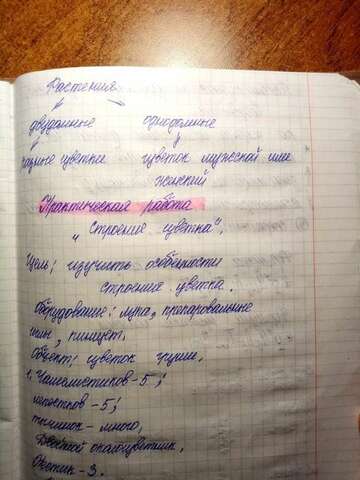 Растения
двудомные однодомные
разные цветки цветок мужской или
женский
Практическая работа
"Строение цветка".
Цель: изучить особенности
строения цветка.
Оборудование: лупа, препаровальные
иглы, пинцет.
Объект: цветок груши.
1. Чашелистиков - 5;
лепестков - 5;
тычинок - много,
Двойной околоцветник,
Пестик - 3.